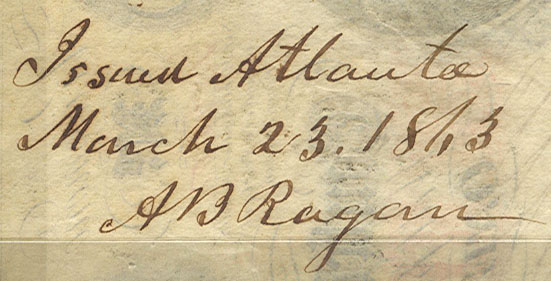 Issued Atlanta
March 23. 1863
A B Ragan